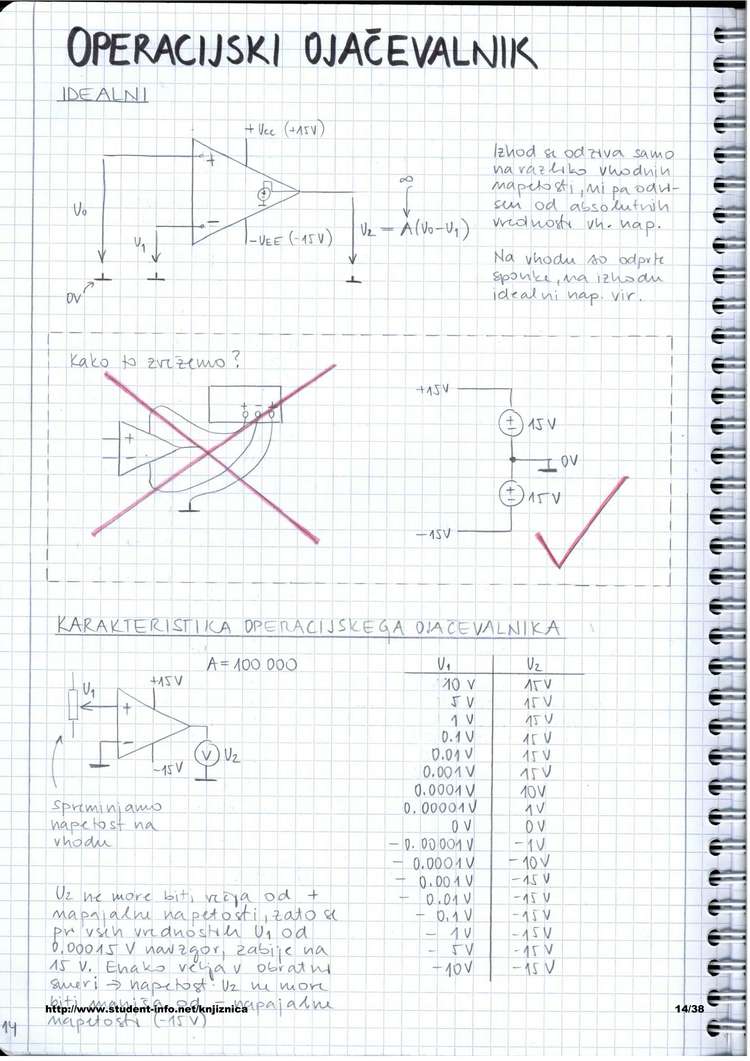 OPERACIJSKI OJAČEVALNIK
IDEALNI
+Vcc (+15V)
+
U₀
U₁
−
-VEE (-15V)
0V
∞
U₂ = A(U₀-U₁)
Izhod se odziva samo
na razliko vhodnih
napetosti, ni pa odvi-
sen od absolutnih
vrednosti vh. nap.
Na vhodu so odprte
sponke, na izhodu
idealni nap. vir.
Kako to zvežemo?
+ − +
+
−
+15V
15V
0V
15V
-15V
KARAKTERISTIKA OPERACIJSKEGA OJAČEVALNIKA
A = 100 000
U₁
+15V
+
−
-15V
V
U₂
spreminjamo
napetost na
vhodu
U₁ U₂
10 V 15 V
5 V 15 V
1 V 15 V
0.1 V 15 V
0.01 V 15 V
0.001 V 15 V
0.0001 V 10V
0.00001 V 1 V
0 V 0 V
- 0.00001 V -1 V
- 0.0001 V -10 V
- 0.001 V -15 V
- 0.01 V -15 V
- 0,1 V -15 V
- 1 V -15 V
- 5 V -15 V
-10V -15 V
U₂ ne more biti večja od +
napajalne napetosti, zato se
pri vseh vrednostih U₁ od
0,00015 V navzgor, zabije na
15 V. Enako velja v obratni
smeri → napetost U₂ ne more
biti manjša od - napajalne
napetosti (-15V)
http://www.student-info.net/knjiznica
14/38
14